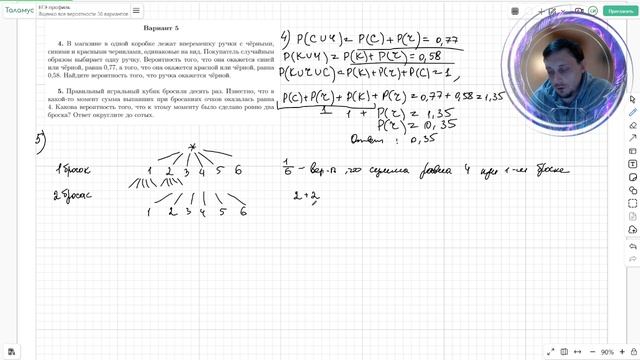 Таломус
ЕГЭ профиль
Ященко все вероятности 36 вариантов
Пригласить
Вариант 5
4. В магазине в одной коробке лежат вперемешку ручки с чёрными,
синими и красными чернилами, одинаковые на вид. Покупатель случайным
образом выбирает одну ручку. Вероятность того, что она окажется синей
или чёрной, равна 0,77, а того, что она окажется красной или чёрной, равна
0,58. Найдите вероятность того, что ручка окажется чёрной.
5. Правильный игральный кубик бросили десять раз. Известно, что в
какой-то момент сумма выпавших при бросаниях очков оказалась равна
4. Какова вероятность того, что к этому моменту было сделано ровно два
броска? Ответ округлите до сотых.
4) P(C∪Ч) = P(C) + P(Ч) = 0,77
P(K∪Ч) = P(K) + P(Ч) = 0,58
P(K∪Ч∪C) = P(K) + P(Ч) + P(C) = 1,
P(C) + P(Ч) + P(K) + P(Ч) = 0,77 + 0,58 = 1,35
1
1 + P(Ч) = 1,35
P(Ч) = 0,35
Ответ: 0,35
5)
1 бросок 1 2 3 4 5 6
1/6 – вер-ть, что сумма равна 4 при 1-м броске
2 бросок 1 2 3 4 5 6
2+2
90%